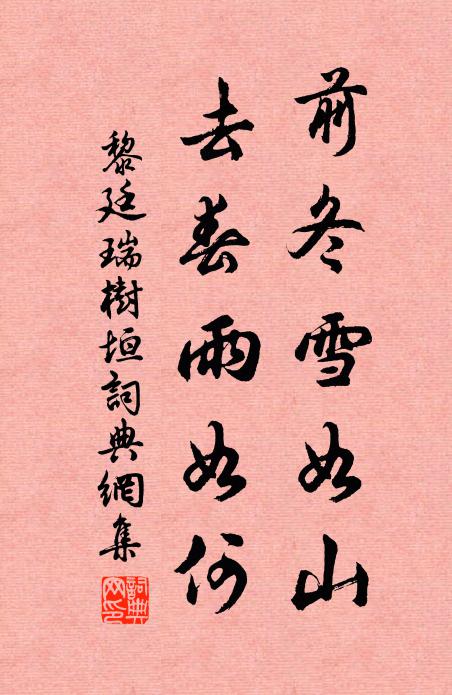 前冬雪如山
去春雨如何
黎廷瑞樹垣詞典網集
詞典網印